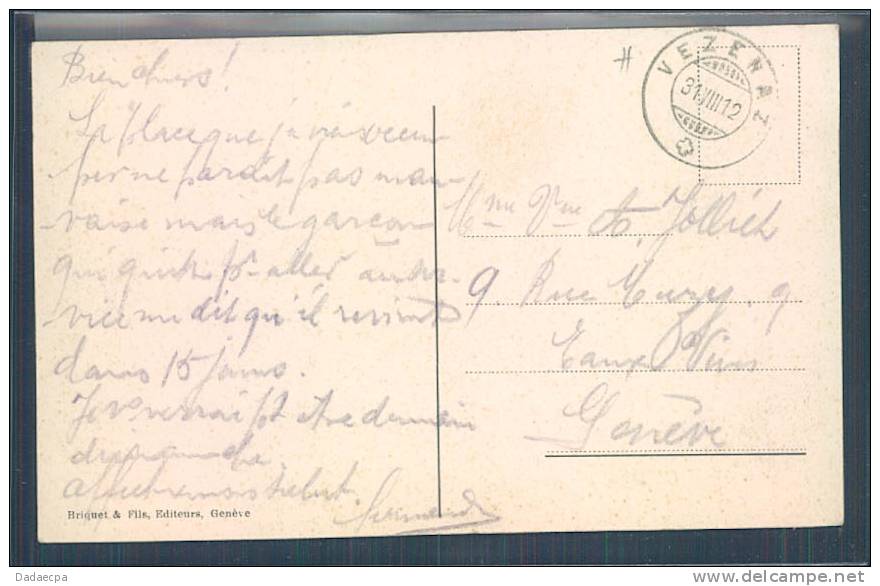 Bien chers!
La place que j'ai
per ne parait pas mau-
vaise mais le garçon
qui quitte pr aller
vice me dit qu'il
dans 15 jours.
Je vs verrai pt être demain
dimanche
salut.
VEZENAZ
31.VIII.12
Mme Vve A. Jolliet
9. Rue 9
Eaux Vives
Genève
Briquet & Fils, Editeurs, Genève
Dadaecpa
http://www.delcampe.net